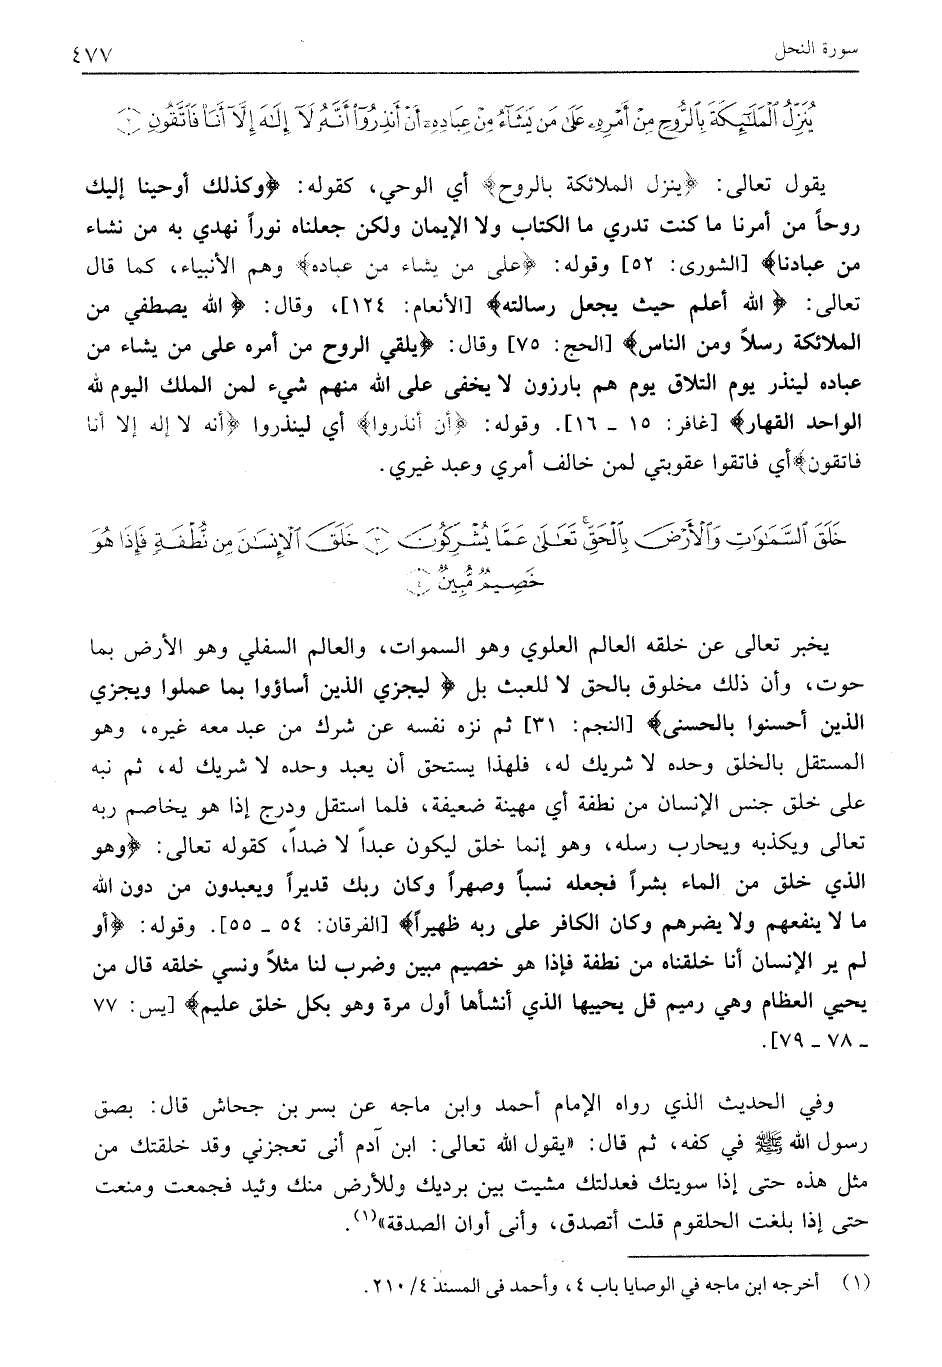 سورة النحل ٤٧٧
يُنَزِّلُ ٱلْمَلَٰٓئِكَةَ بِٱلرُّوحِ مِنْ أَمْرِهِۦ عَلَىٰ مَن يَشَآءُ مِنْ عِبَادِهِۦٓ أَنْ أَنذِرُوٓا۟ أَنَّهُۥ لَآ إِلَٰهَ إِلَّآ أَنَا۠ فَٱتَّقُونِ ﴿٢﴾
يقول تعالى: ﴿ينزل الملائكة بالروح﴾ أي الوحي، كقوله: ﴿وكذلك أوحينا إليك
روحاً من أمرنا ما كنت تدري ما الكتاب ولا الإيمان ولكن جعلناه نوراً نهدي به من نشاء
من عبادنا﴾ [الشورى: ٥٢] وقوله: ﴿على من يشاء من عباده﴾ وهم الأنبياء، كما قال
تعالى: ﴿ الله أعلم حيث يجعل رسالته﴾ [الأنعام: ١٢٤]، وقال: ﴿ الله يصطفي من
الملائكة رسلاً ومن الناس﴾ [الحج: ٧٥] وقال: ﴿يلقي الروح من أمره على من يشاء من
عباده لينذر يوم التلاق يوم هم بارزون لا يخفى على الله منهم شيء لمن الملك اليوم لله
الواحد القهار﴾ [غافر: ١٥ ـ ١٦]. وقوله: ﴿أن أنذروا﴾ أي لينذروا ﴿أنه لا إله إلا أنا
فاتقون﴾أي فاتقوا عقوبتي لمن خالف أمري وعبد غيري.
خَلَقَ ٱلسَّمَٰوَٰتِ وَٱلْأَرْضَ بِٱلْحَقِّ ۚ تَعَٰلَىٰ عَمَّا يُشْرِكُونَ ﴿٣﴾ خَلَقَ ٱلْإِنسَٰنَ مِن نُّطْفَةٍ فَإِذَا هُوَ
خَصِيمٌ مُّبِينٌ ﴿٤﴾
يخبر تعالى عن خلقه العالم العلوي وهو السموات، والعالم السفلي وهو الأرض بما
حوت، وأن ذلك مخلوق بالحق لا للعبث بل ﴿ ليجزي الذين أساؤوا بما عملوا ويجزي
الذين أحسنوا بالحسنى﴾ [النجم: ٣١] ثم نزه نفسه عن شرك من عبد معه غيره، وهو
المستقل بالخلق وحده لا شريك له، فلهذا يستحق أن يعبد وحده لا شريك له، ثم نبه
على خلق جنس الإنسان من نطفة أي مهينة ضعيفة، فلما استقل ودرج إذا هو يخاصم ربه
تعالى ويكذبه ويحارب رسله، وهو إنما خلق ليكون عبداً لا ضداً، كقوله تعالى: ﴿وهو
الذي خلق من الماء بشراً فجعله نسباً وصهراً وكان ربك قديراً ويعبدون من دون الله
ما لا ينفعهم ولا يضرهم وكان الكافر على ربه ظهيراً﴾ [الفرقان: ٥٤ ـ ٥٥]. وقوله: ﴿أو
لم ير الإنسان أنا خلقناه من نطفة فإذا هو خصيم مبين وضرب لنا مثلاً ونسي خلقه قال من
يحيي العظام وهي رميم قل يحييها الذي أنشأها أول مرة وهو بكل خلق عليم﴾ [يس: ٧٧
ـ ٧٨ ـ ٧٩].
وفي الحديث الذي رواه الإمام أحمد وابن ماجه عن بسر بن جحاش قال: بصق
رسول الله ﷺ في كفه، ثم قال: «يقول الله تعالى: ابن آدم أنى تعجزني وقد خلقتك من
مثل هذه حتى إذا سويتك فعدلتك مشيت بين برديك وللأرض منك وئيد فجمعت ومنعت
حتى إذا بلغت الحلقوم قلت أتصدق، وأنى أوان الصدقة»(١).
(١) أخرجه ابن ماجه في الوصايا باب ٤، وأحمد في المسند ٤/ ٢١٠.